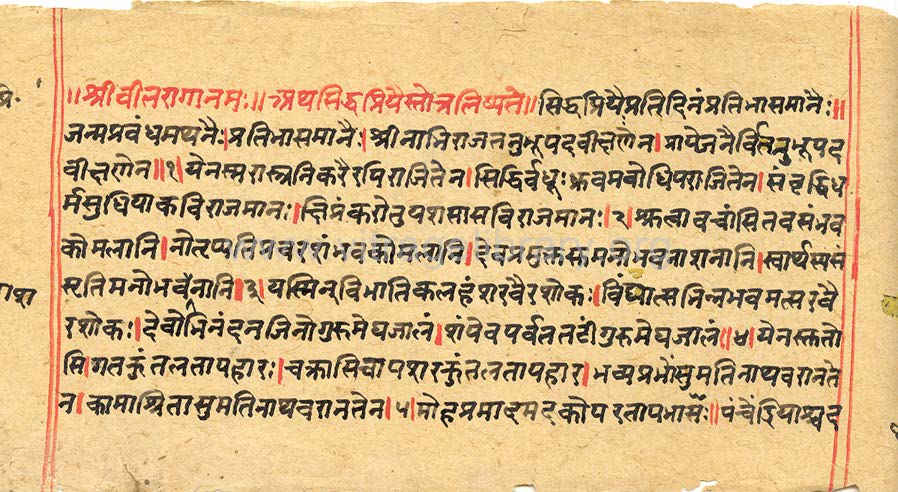 ॥श्रीवीतरागानमः॥अथसिद्धप्रियस्तोत्रलिष्यते॥सिद्धप्रियैप्रतिदिनंप्रतिभासमानैः॥
जन्मप्रबंधमथनैः।प्रतिभासमानैः।श्रीनाभिराजतनुभूपदवीक्षणेन।प्रापेजनैर्वितनुभूपद
वीक्षणेन॥१॥येनस्मरास्त्रनिकरैरपिराजितेन।सिद्धिर्वधूःध्रुवमबोधिपराजितेन।संवृद्धिध
र्मसुधियाकविराजमानः।क्षिप्रंकरोतुयशसासविराजमानः।२।श्रुत्वावचांसितवसंभव
कोमलानि।नोतृप्यतिप्रवरशंभवकोमलानि।देवप्रमुक्तसुमनोभवनाशनानि।स्वार्थस्यसं
सृतिमनोभवनाशनानि।३।यस्मिन्विभातिकलहंशरवैरशोकः।विंध्यात्सनिन्नभवमत्सरवै
रशोकः।देवोभिनंदनजिनोगुरुमेघजालं।शंपेवपर्वततटींगुरुमेघजालं॥४।येनस्तुतो
सिगतकुंतलतापहारः।चक्रासिचापशरकुंतलतापहार।भव्यप्रभोसुमतिनाथवरानते
न।कामाश्रितासुमतिनाथवरानतेन।५।मोहप्रमादमदकोपरतापभासैः॥पंचेंद्रियाश्वद